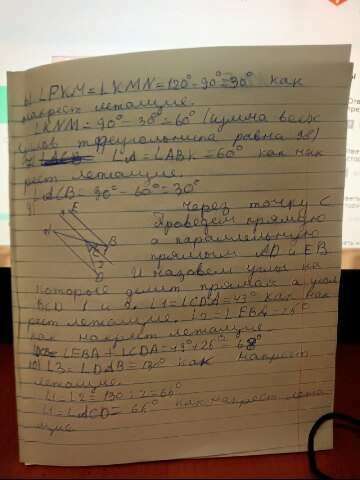 ∠PKM=∠KMN=120°-90°=30° как
накрест летащие.
∠KNM=90°-30°=60° (сумма всех
углов треугольника равна
∠A=∠ABK=60° как нак
рест летащие.
∠ACB=90°-60°=30°
9)
E
B
D
Через точку C
проведем прямую
a параллельную
прямым AD и EB
И назовем углы на
которые делит прямая a угол
BCD 1 и 2. ∠1=∠CDA=43° как нак
рест летащие. ∠2=∠EBA=
как накрест летащие.
=∠EBA+∠CDA=43°+25°=68°
10) ∠3=∠DAB=130° как накрест
летащие.
∠1=∠2=130°:2=
∠1=∠ACD= как накрест лета
щие